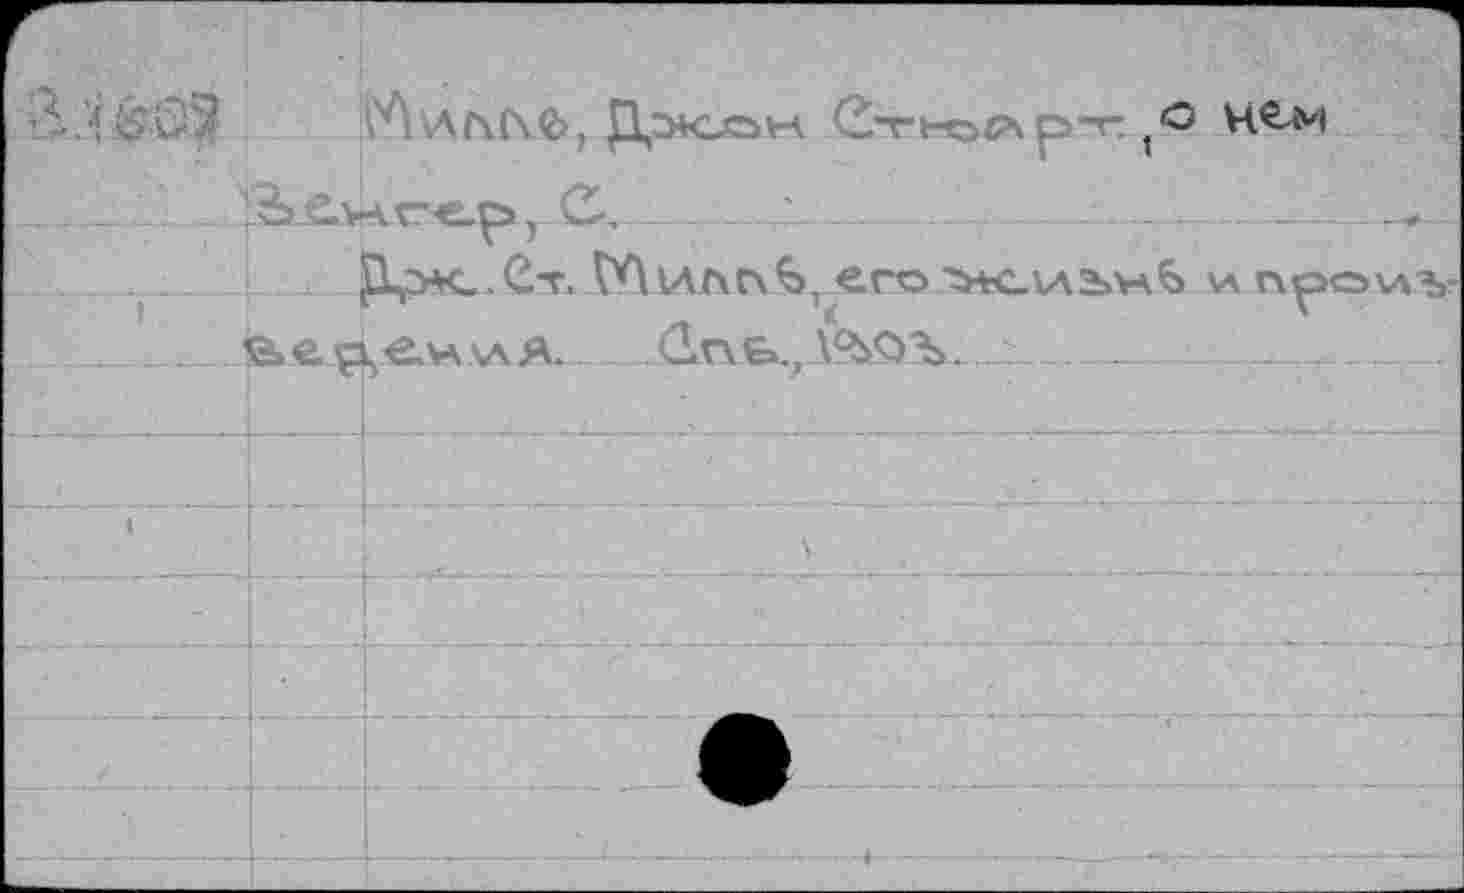 Милль, Джон Стюарт, о нем
Зенгер, С.
Дж. Ст. Милль, его жизнь и произ-
ведения. Спб., 1903.